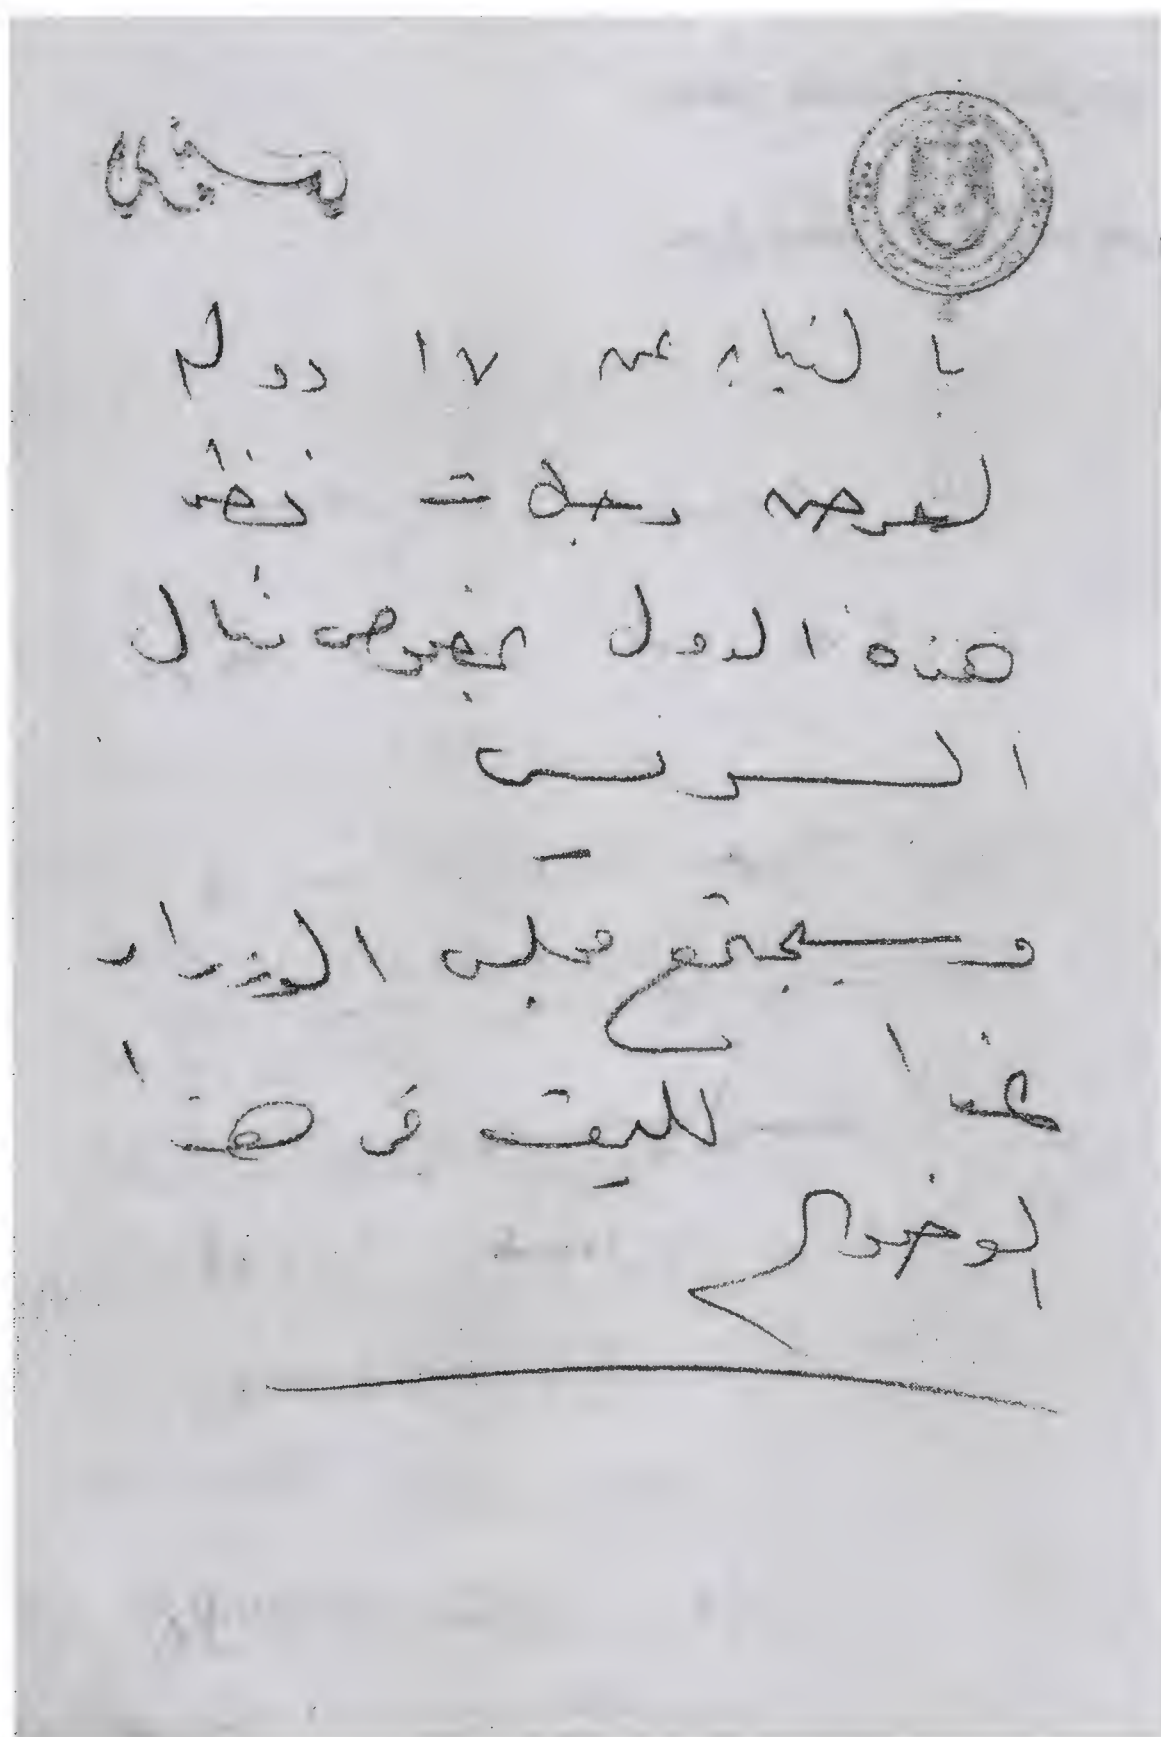 بالنيابه عن ١٧ دوله
لعرض وجهات نظر
هذه الدول بخصوص قنال
السويس
وسيجتمع مجلس الوزراء
غدا للبت فى هذا
الموضوع